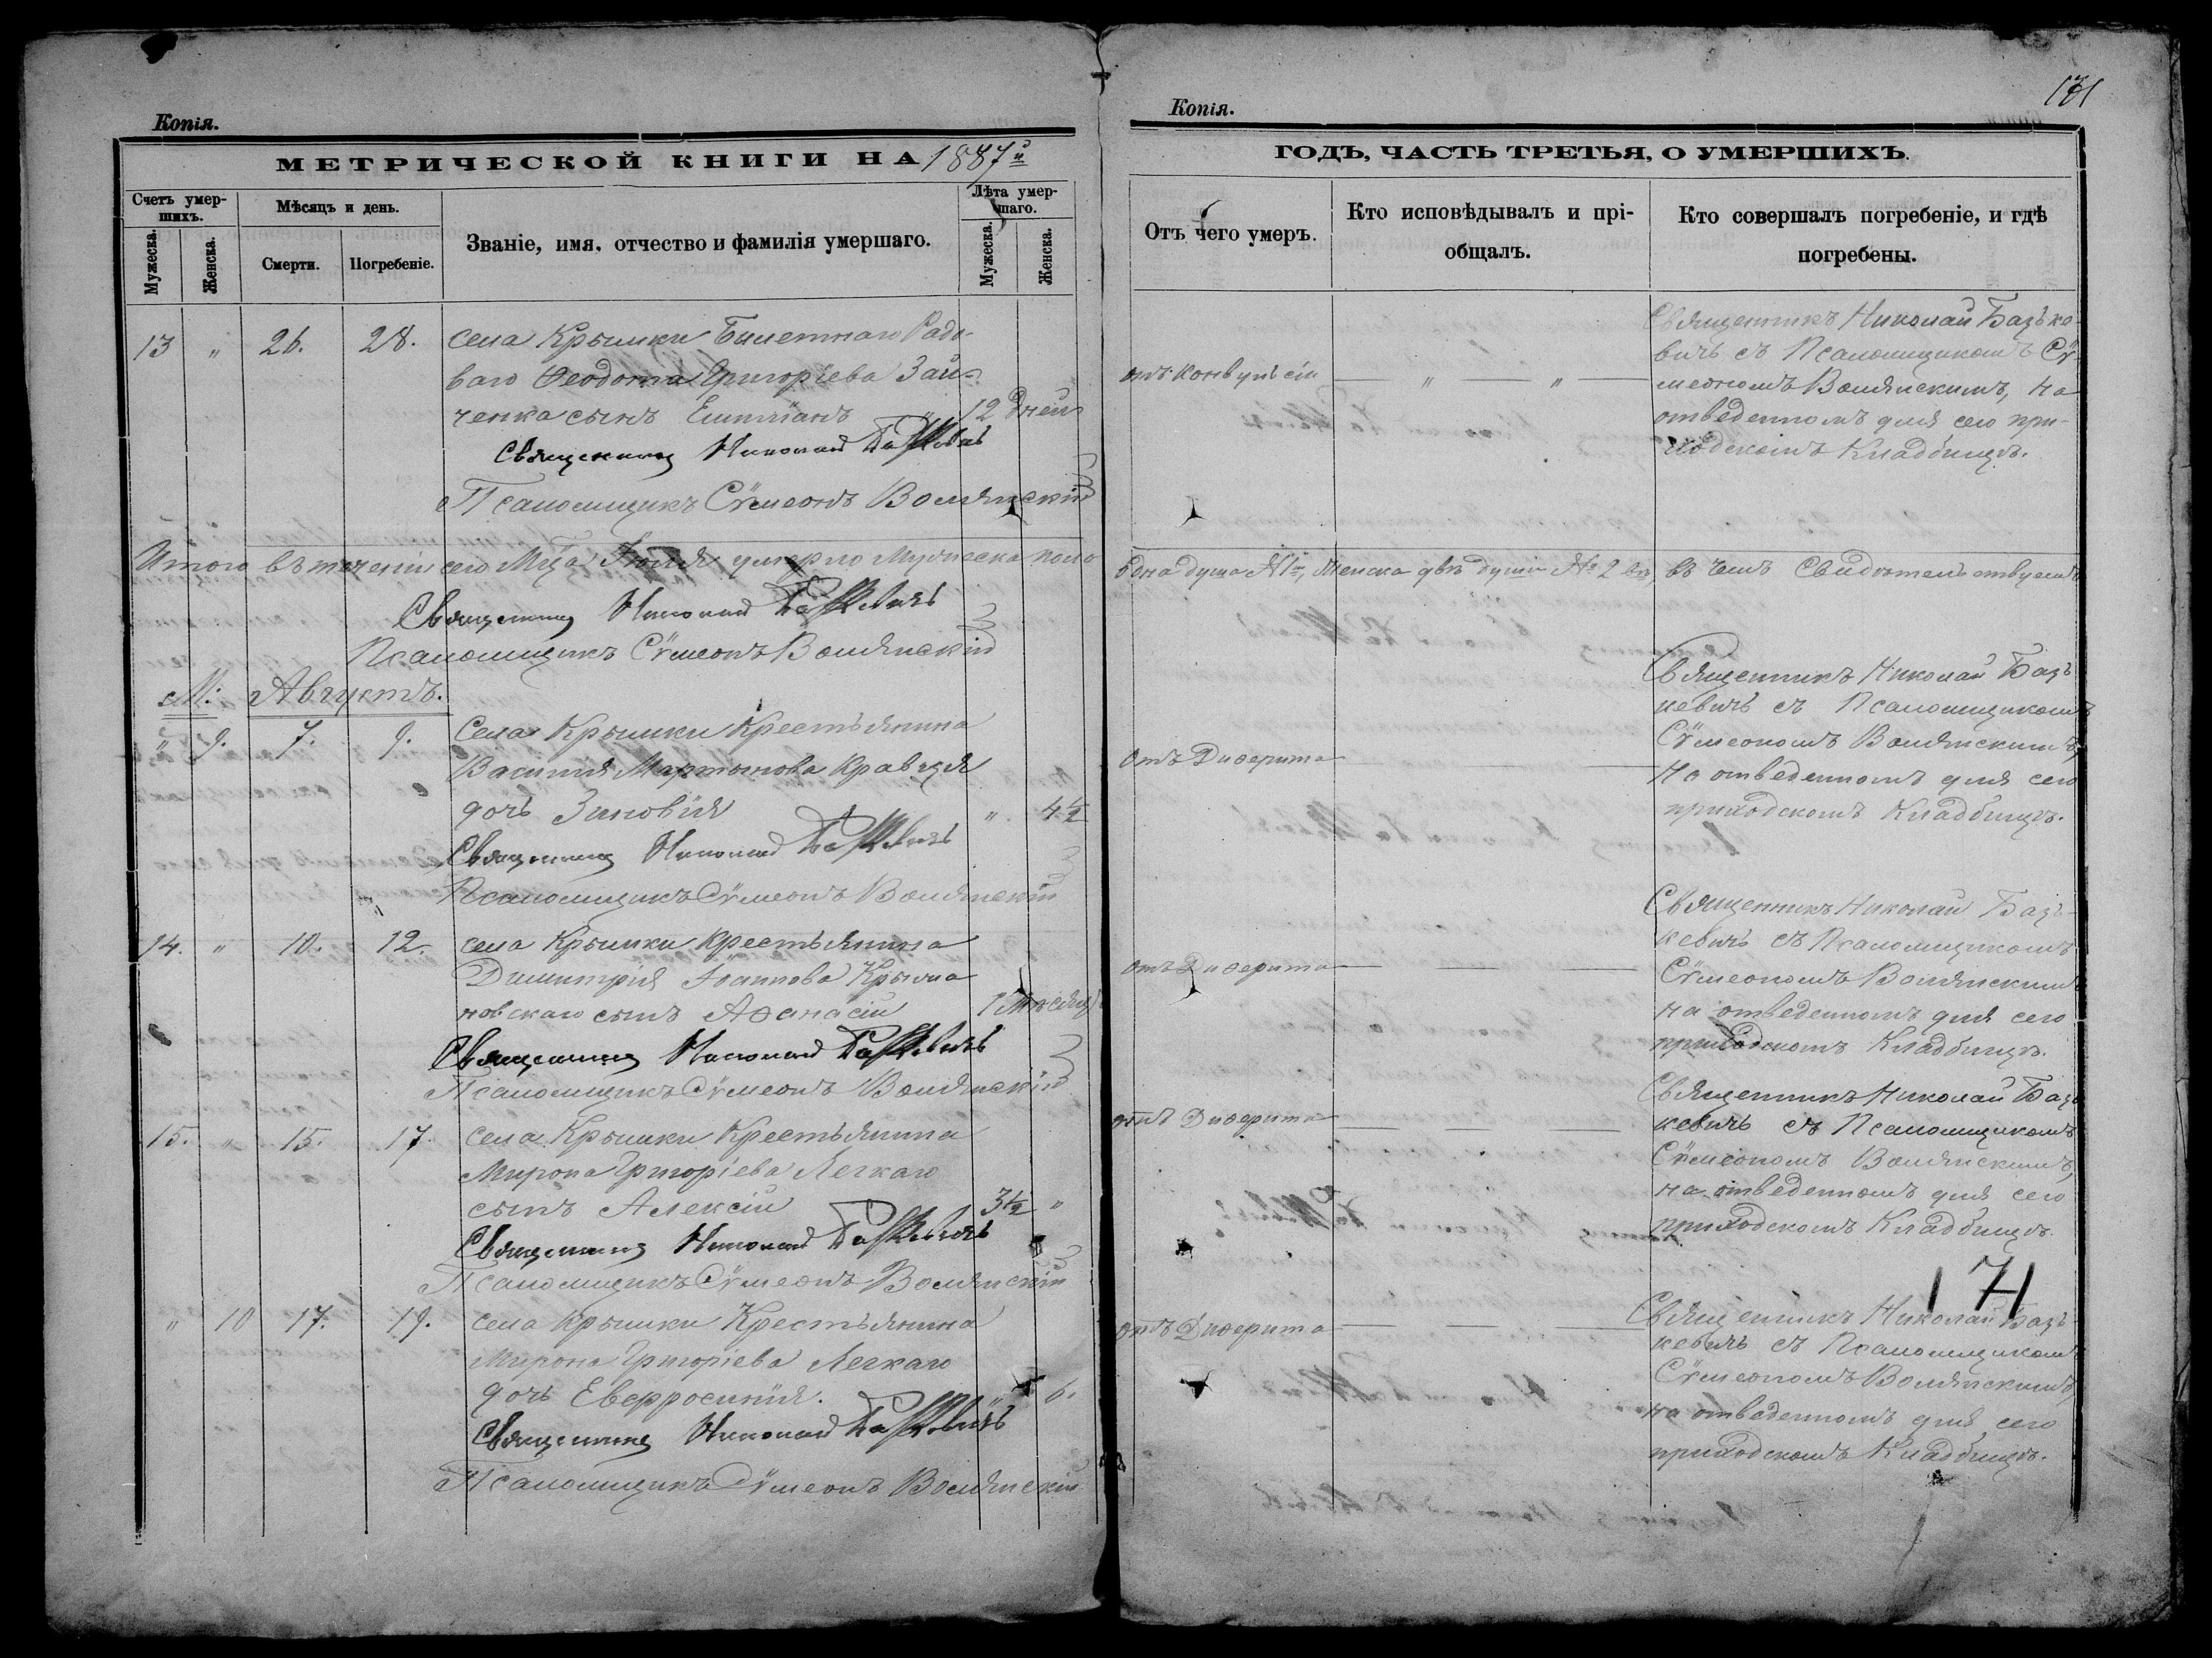 Копія.
МЕТРИЧЕСКОЙ КНИГИ НА 1887й
Счетъ умер-
шихъ.
Мѣсяцъ и день.
Званіе, имя, отчество и фамилія умершаго.
Лѣта умер-
шаго.
Мужеска.
Женска.
Смерти.
Погребеніе.
Мужеска.
Женска.
13 " 26. 28. села Крымки Билетнаго Рядо-
ваго Ѳеодота Григоріева Зай-
ченка сынъ Емиліанъ 12 дней
Священникъ Николай Базькевичъ
Псаломщикъ Сѵмеонъ Волянскій
Итого въ теченіи сего Мца Іюля умерло Мужеска пола
Священникъ Николай Базькевичъ
Псаломщикъ Сѵмеонъ Волянскій
М: Августъ.
" 9. 7. 9. Села Крымки Крестьянина
Василія Мартынова Кравця
дочь Зиновія " 4½
Священникъ Николай Базькевичъ
Псаломщикъ Сѵмеонъ Волянскій
14. " 10. 12. села Крымки Крестьянина
Димитрія Іоаннова Крыма
новскаго сынъ Аѳанасій 1 Мѣсяцъ
Священникъ Николай Базькевичъ
Псаломщикъ Сѵмеонъ Волянскій
15. " 15. 17. села Крымки Крестьянина
Мирона Григоріева Легкаго
сынъ Алексій 3½ "
Священникъ Николай Базькевичъ
Псаломщикъ Сѵмеонъ Волянскій
" 10 17. 19. села Крымки Крестьянина
Мирона Григоріева Легкаго
дочь Евфросинія. " 6.
Священникъ Николай Базькевичъ
Псаломщикъ Сѵмеонъ Волянскій
171
Копія.
ГОДЪ, ЧАСТЬ ТРЕТЬЯ, О УМЕРШИХЪ.
Отъ чего умеръ.
Кто исповѣдывалъ и прі-
общалъ.
Кто совершалъ погребеніе, и гдѣ
погребены.
отъ Конвульсіи " "
Священникъ Николай Базьке-
вичъ съ Псаломщикомъ Сѵ-
меономъ Волянскимъ, на
отведенномъ для сего при-
ходскомъ Кладбищѣ.
Една душа №1й, Женска двѣ души №2 въ чемъ Свидѣтельствуемъ
отъ Диферита
Священникъ Николай Базь
кевичъ съ Псаломщикомъ
Сѵмеономъ Волянскимъ,
на отведенномъ для сего
приходскомъ Кладбищѣ.
отъ Диферита
Священникъ Николай Базь-
кевичъ съ Псаломщикомъ
Сѵмеономъ Волянскимъ
на отведенномъ для сего
приходскомъ Кладбищѣ.
отъ Диферита
Священникъ Николай Базь
кевичъ съ Псаломщикомъ
Сѵмеономъ Волянскимъ,
на отведенномъ для сего
приходскомъ Кладбищѣ.
171
отъ Диферита
Священникъ Николай Базь-
кевичъ съ Псаломщикомъ
Сѵмеономъ Волянскимъ,
на отведенномъ для сего
приходскомъ Кладбищѣ.